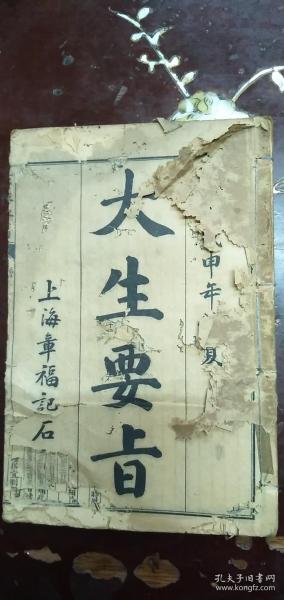 申年 夏
大生要旨
上海章福記石
孔夫子旧书网
kongfz.com